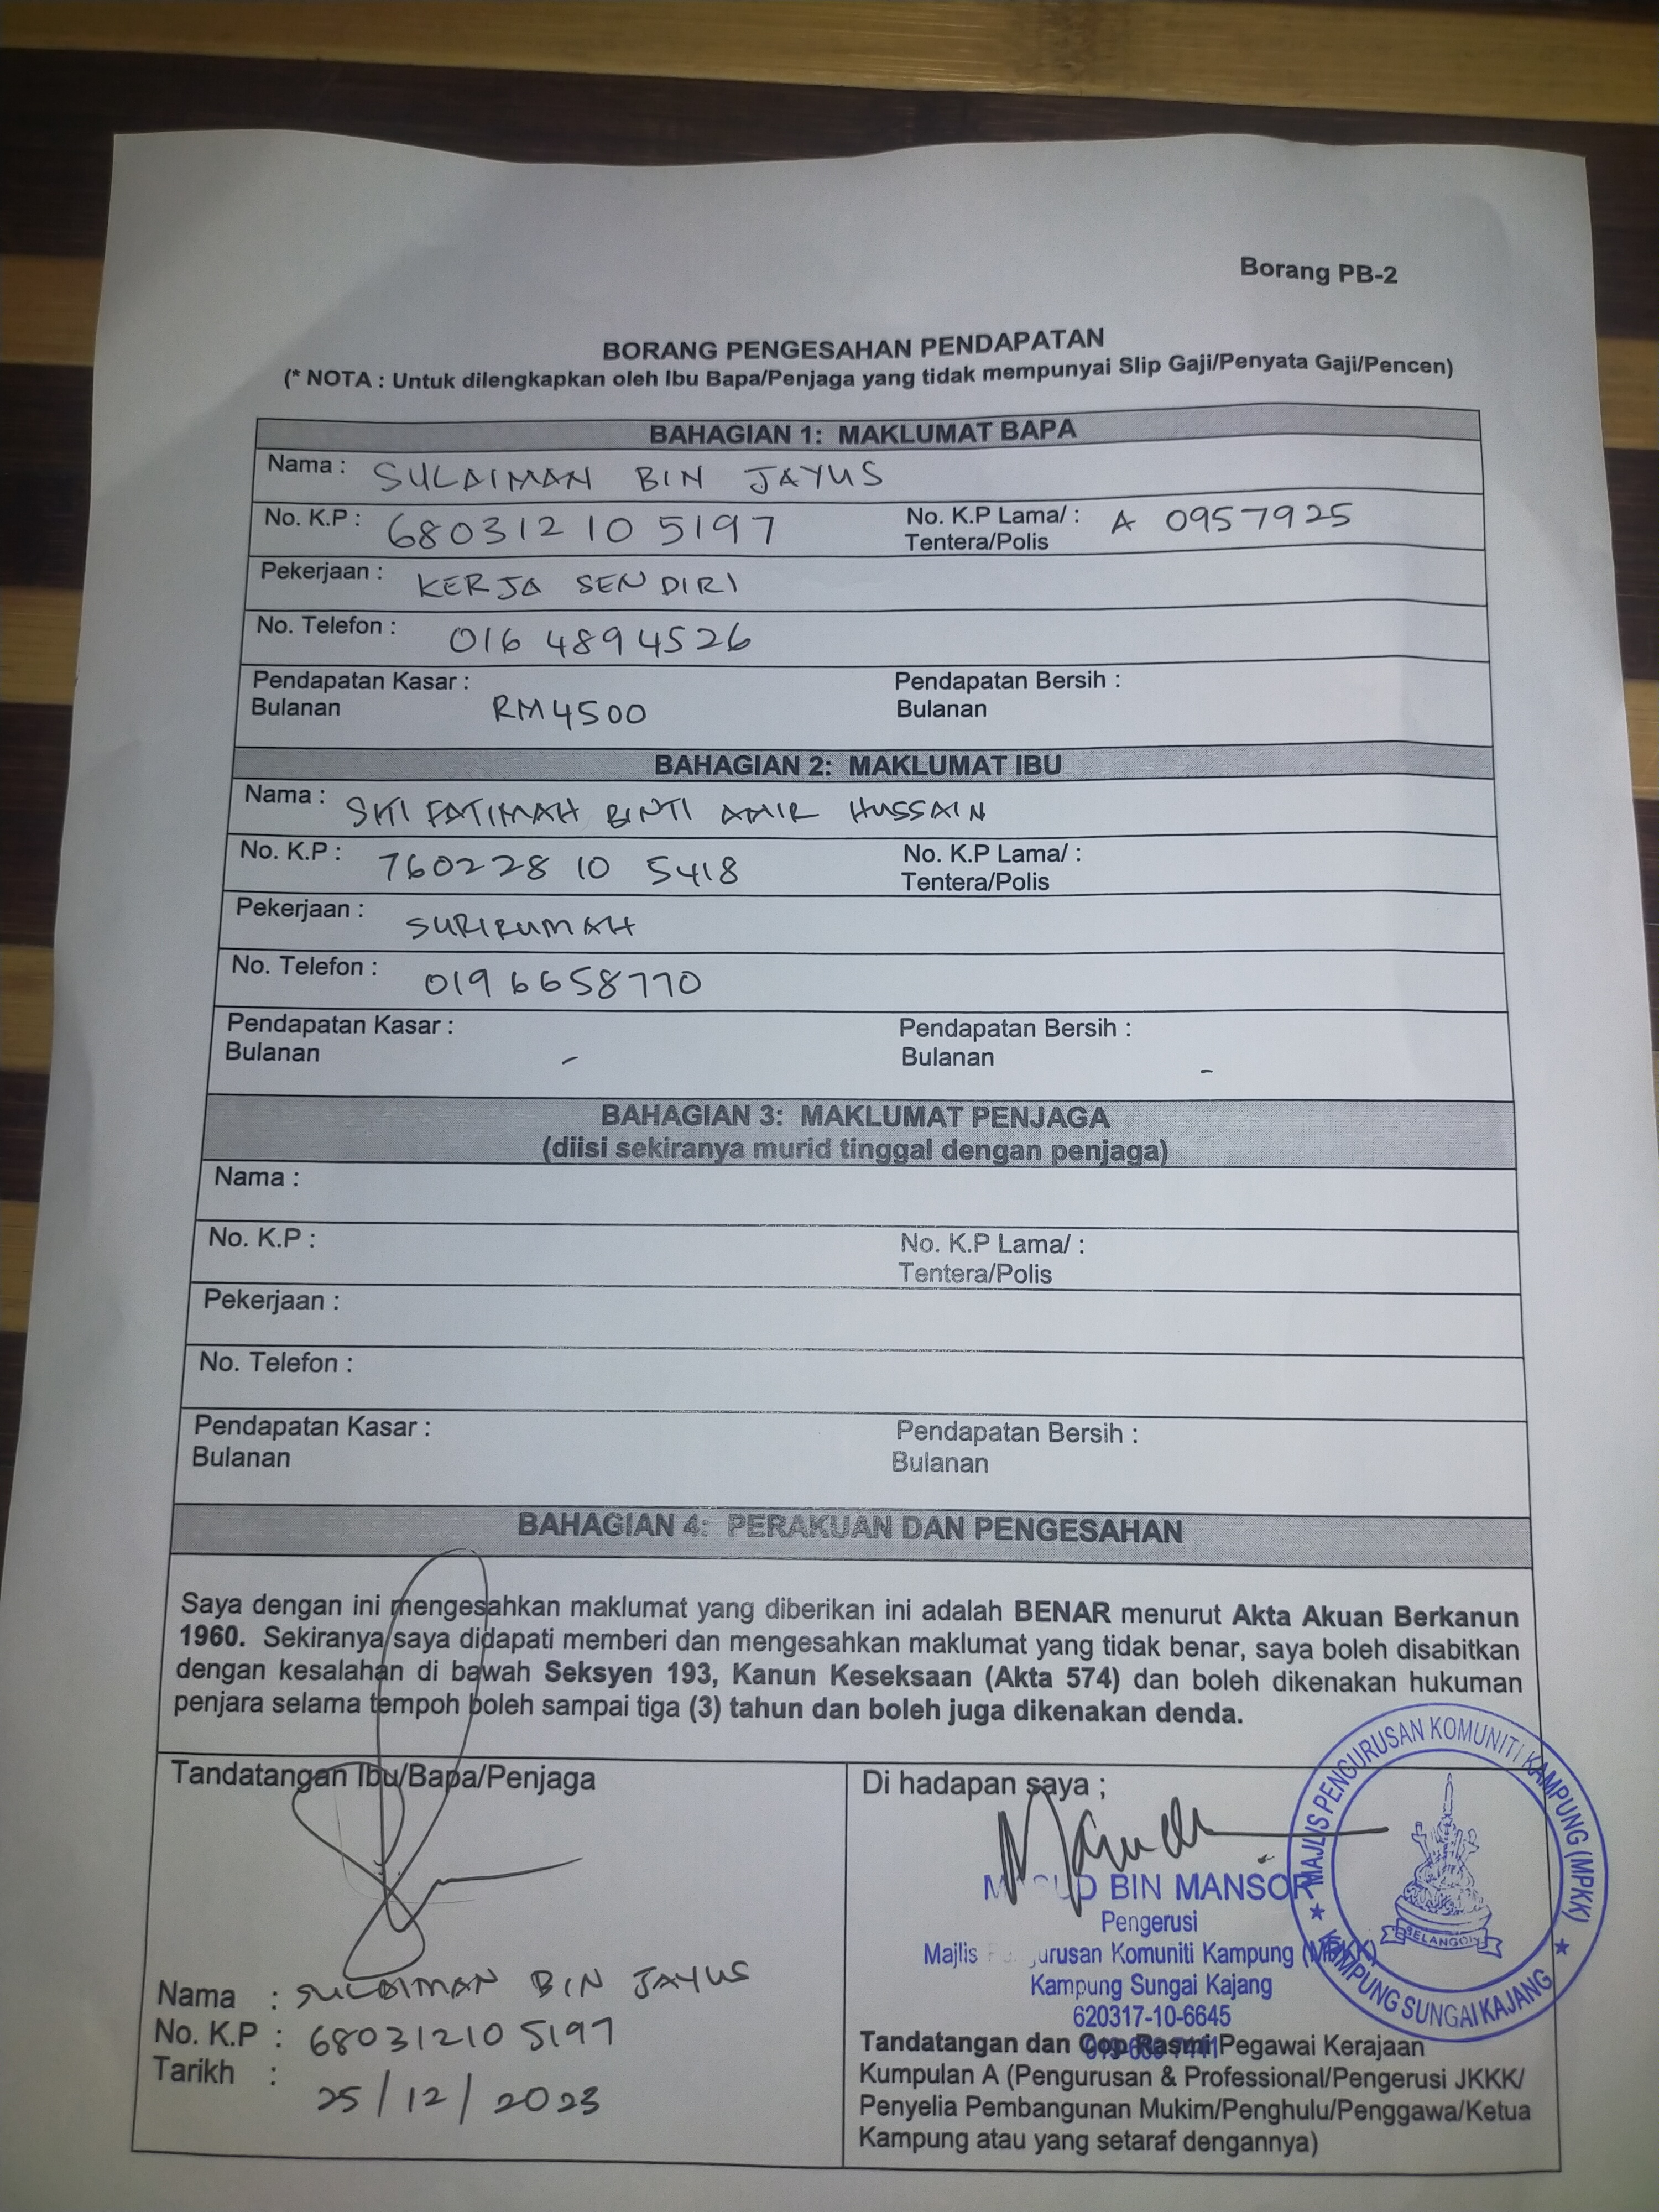 Borang PB-2
BORANG PENGESAHAN PENDAPATAN
(* NOTA : Untuk dilengkapkan oleh Ibu Bapa/Penjaga yang tidak mempunyai Slip Gaji/Penyata Gaji/Pencen)
BAHAGIAN 1: MAKLUMAT BAPA
Nama : SULAIMAN BIN JAYUS
No. K.P : 680312 10 5197 No. K.P Lama/ : A 0957925
Tentera/Polis
Pekerjaan : KERJA SENDIRI
No. Telefon : 016 4894526
Pendapatan Kasar : Pendapatan Bersih :
Bulanan RM4500 Bulanan
BAHAGIAN 2: MAKLUMAT IBU
Nama : SITI FATIMAH BINTI AMIR HUSSAIN
No. K.P : 760228 10 5418 No. K.P Lama/ :
Tentera/Polis
Pekerjaan : SURIRUMAH
No. Telefon : 019 6658770
Pendapatan Kasar : Pendapatan Bersih :
Bulanan - Bulanan -
BAHAGIAN 3: MAKLUMAT PENJAGA
(diisi sekiranya murid tinggal dengan penjaga)
Nama :
No. K.P : No. K.P Lama/ :
Tentera/Polis
Pekerjaan :
No. Telefon :
Pendapatan Kasar : Pendapatan Bersih :
Bulanan Bulanan
BAHAGIAN 4: PERAKUAN DAN PENGESAHAN
Saya dengan ini mengesahkan maklumat yang diberikan ini adalah BENAR menurut Akta Akuan Berkanun
1960. Sekiranya saya didapati memberi dan mengesahkan maklumat yang tidak benar, saya boleh disabitkan
dengan kesalahan di bawah Seksyen 193, Kanun Keseksaan (Akta 574) dan boleh dikenakan hukuman
penjara selama tempoh boleh sampai tiga (3) tahun dan boleh juga dikenakan denda.
Tandatangan Ibu/Bapa/Penjaga
Nama : SULAIMAN BIN JAYUS
No. K.P : 680312105197
Tarikh : 25/12/2023
Di hadapan saya ;
BIN MANSOR
Pengerusi
Majlis Pengurusan Komuniti Kampung (MPKK)
Kampung Sungai Kajang
620317-10-6645
MAJLIS PENGURUSAN KOMUNITI KAMPUNG (MPKK)
SELANGOR
KAMPUNG SUNGAI KAJANG
Tandatangan dan Cop Rasmi Pegawai Kerajaan
Kumpulan A (Pengurusan & Professional/Pengerusi JKKK/
Penyelia Pembangunan Mukim/Penghulu/Penggawa/Ketua
Kampung atau yang setaraf dengannya)